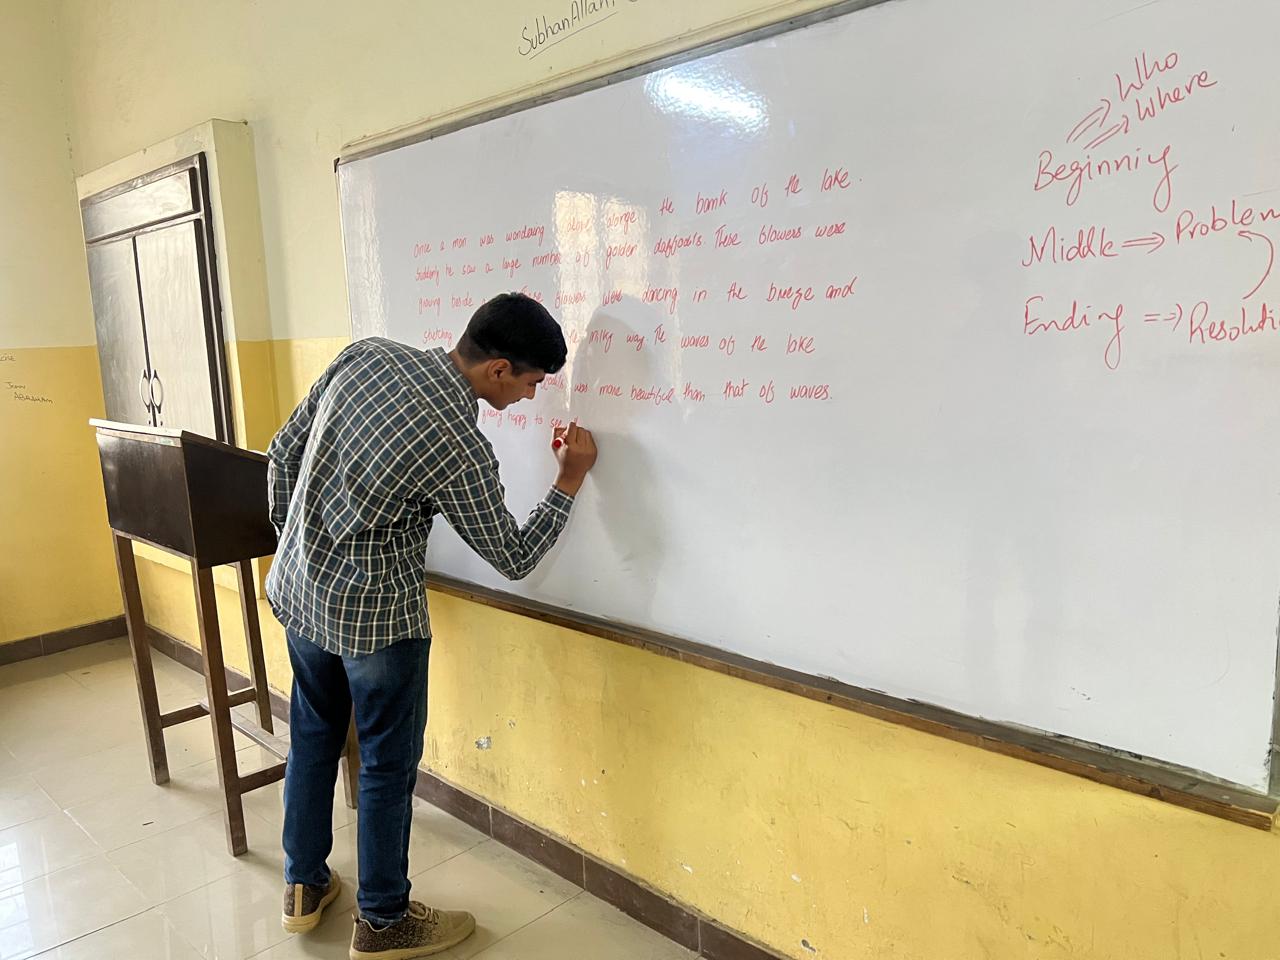 SubhanAllah
Once a man was wondering alone alonge the bank of the lake.
Suddenly he saw a large number of golden daffodals. These flowers were
growing beside These flowers were dancing in the breeze and
stretching milky way. The waves of the lake
was more beautiful than that of waves.
happy to see
Who
Where
Beginniy
Middle ⇒ Problem
Ending ⇒ Resoluti